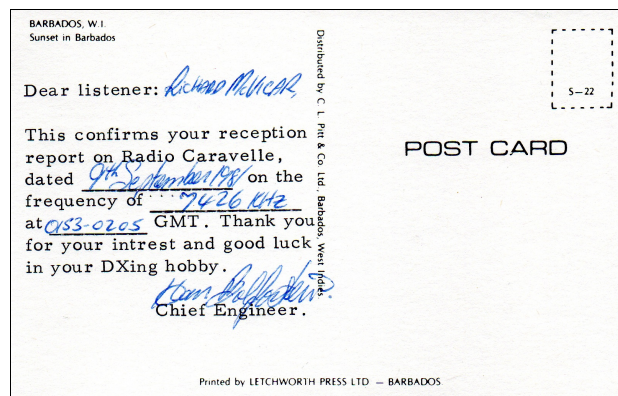 BARBADOS, W.I.
Sunset in Barbados
Dear listener: RICHARD McVICAR,
This confirms your reception
report on Radio Caravelle,
dated 9th September 1981 on the
frequency of 7426 KHz
at 0153-0205 GMT. Thank you
for your intrest and good luck
in your DXing hobby.
Chief Engineer.
Distributed by C. L. Pitt & Co Ltd., Barbados, West Indies
S-22
POST CARD
Printed by LETCHWORTH PRESS LTD — BARBADOS